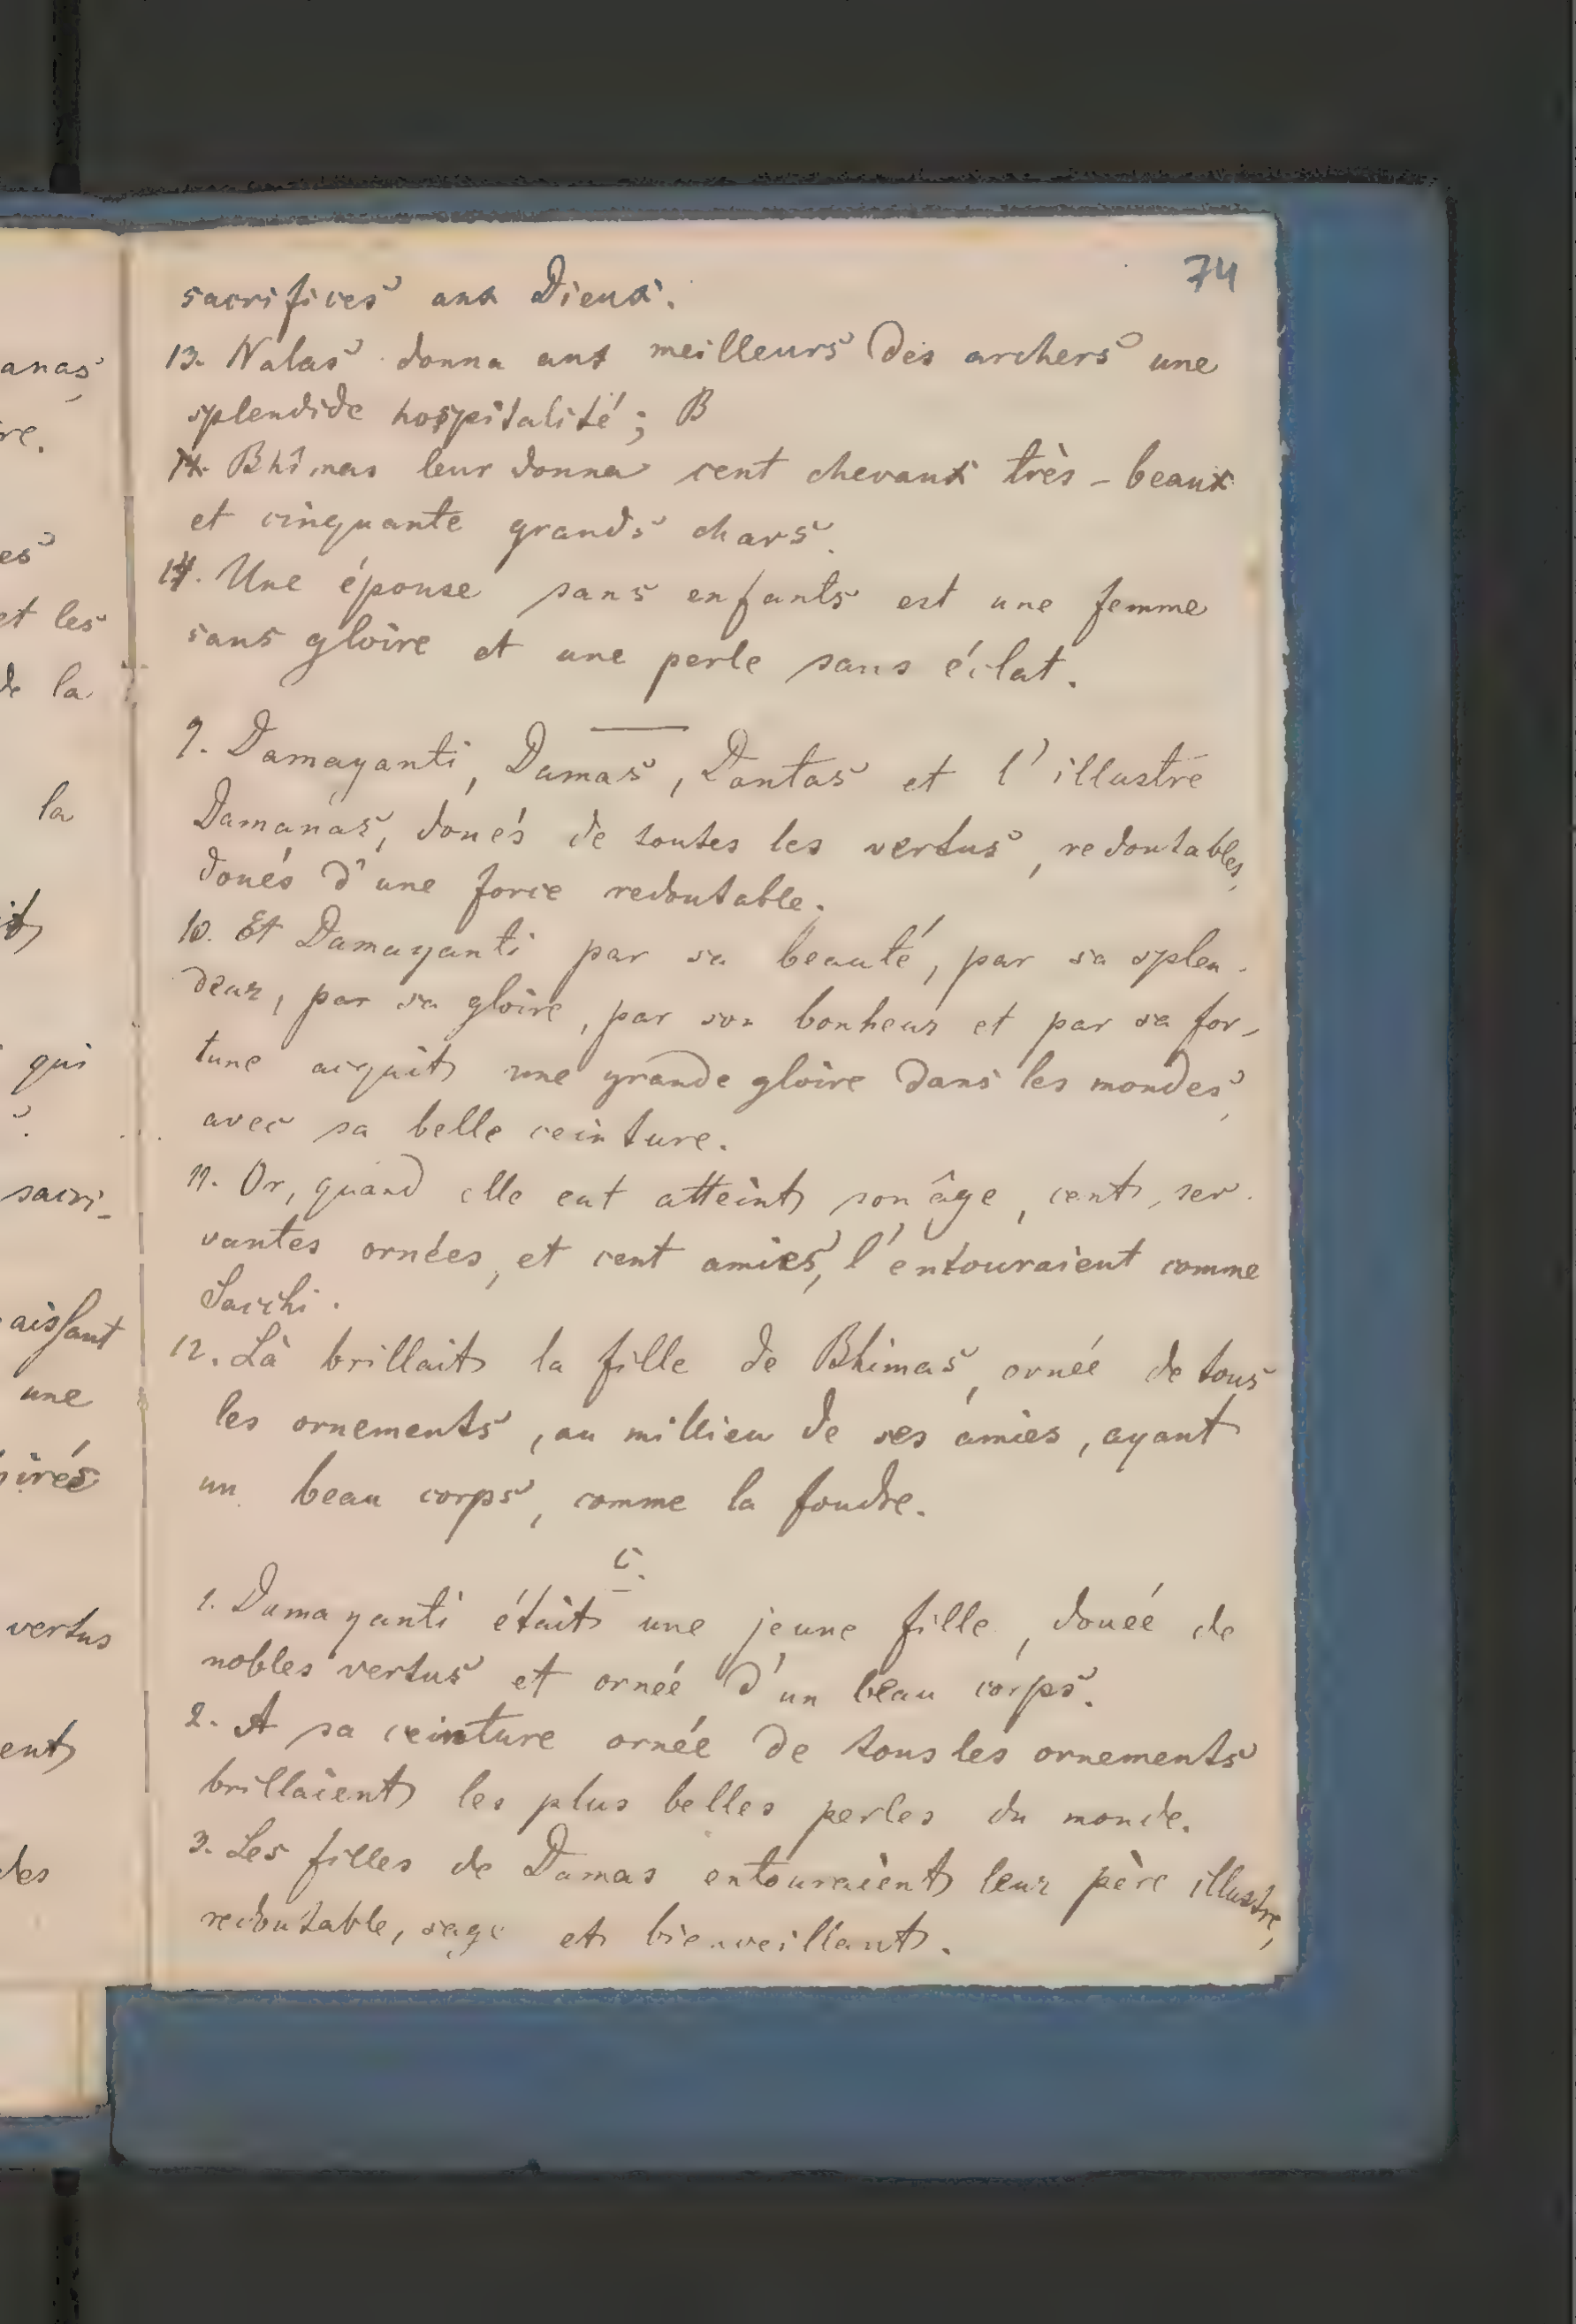 74
sacrifices aux Dieux.
13. Nalas donna aux meilleurs des archers une
splendide hospitalité; B
Bhîmas leur donna cent chevaux très-beaux
et cinquante grands chars.
14. Une épouse sans enfants est une femme
sans gloire et une perle sans éclat.
9. Damayanti, Damas, Dantas et l'illustre
Damanas, doués de toutes les vertus, redoutables,
doués d'une force redoutable.
10. Et Damayanti par sa beauté, par sa splen-
deur, par sa gloire, par son bonheur et par sa for-
tune acquit une grande gloire dans les mondes,
avec sa belle ceinture.
11. Or, quand elle eut atteint son âge, cent ser-
vantes ornées, et cent amies, l'entouraient comme
Sacchi.
12. Là brillait la fille de Bhimas, ornée de tous
les ornements, au millieu de ses amies, ayant
un beau corps, comme la foudre.
C.
1. Damayanti était une jeune fille, douée de
nobles vertus et ornée d'un beau corps.
2. A sa ceinture ornée de tous les ornements
brillaient les plus belles perles du monde.
3. Les filles de Damas entouraient leur père illustre,
redoutable, sage et bienveillant.
anas
re.
es
et les
de la
la
it
qui
sacri-
aissant
une
irés
vertus
ent
des